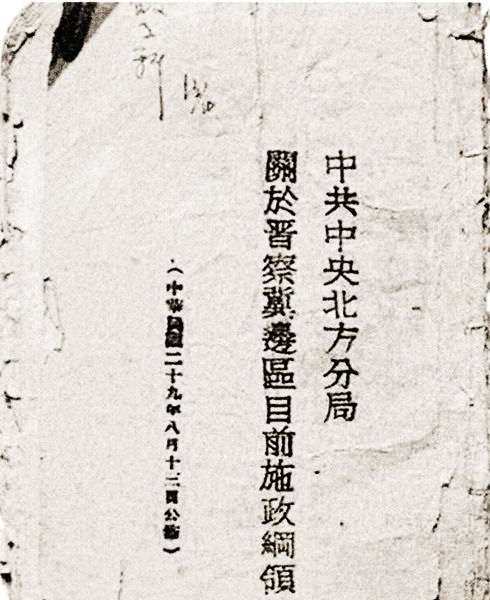 中共中央北方分局
關於晋察冀邊區目前施政綱領
(中華民國二十九年八月十三日公佈)